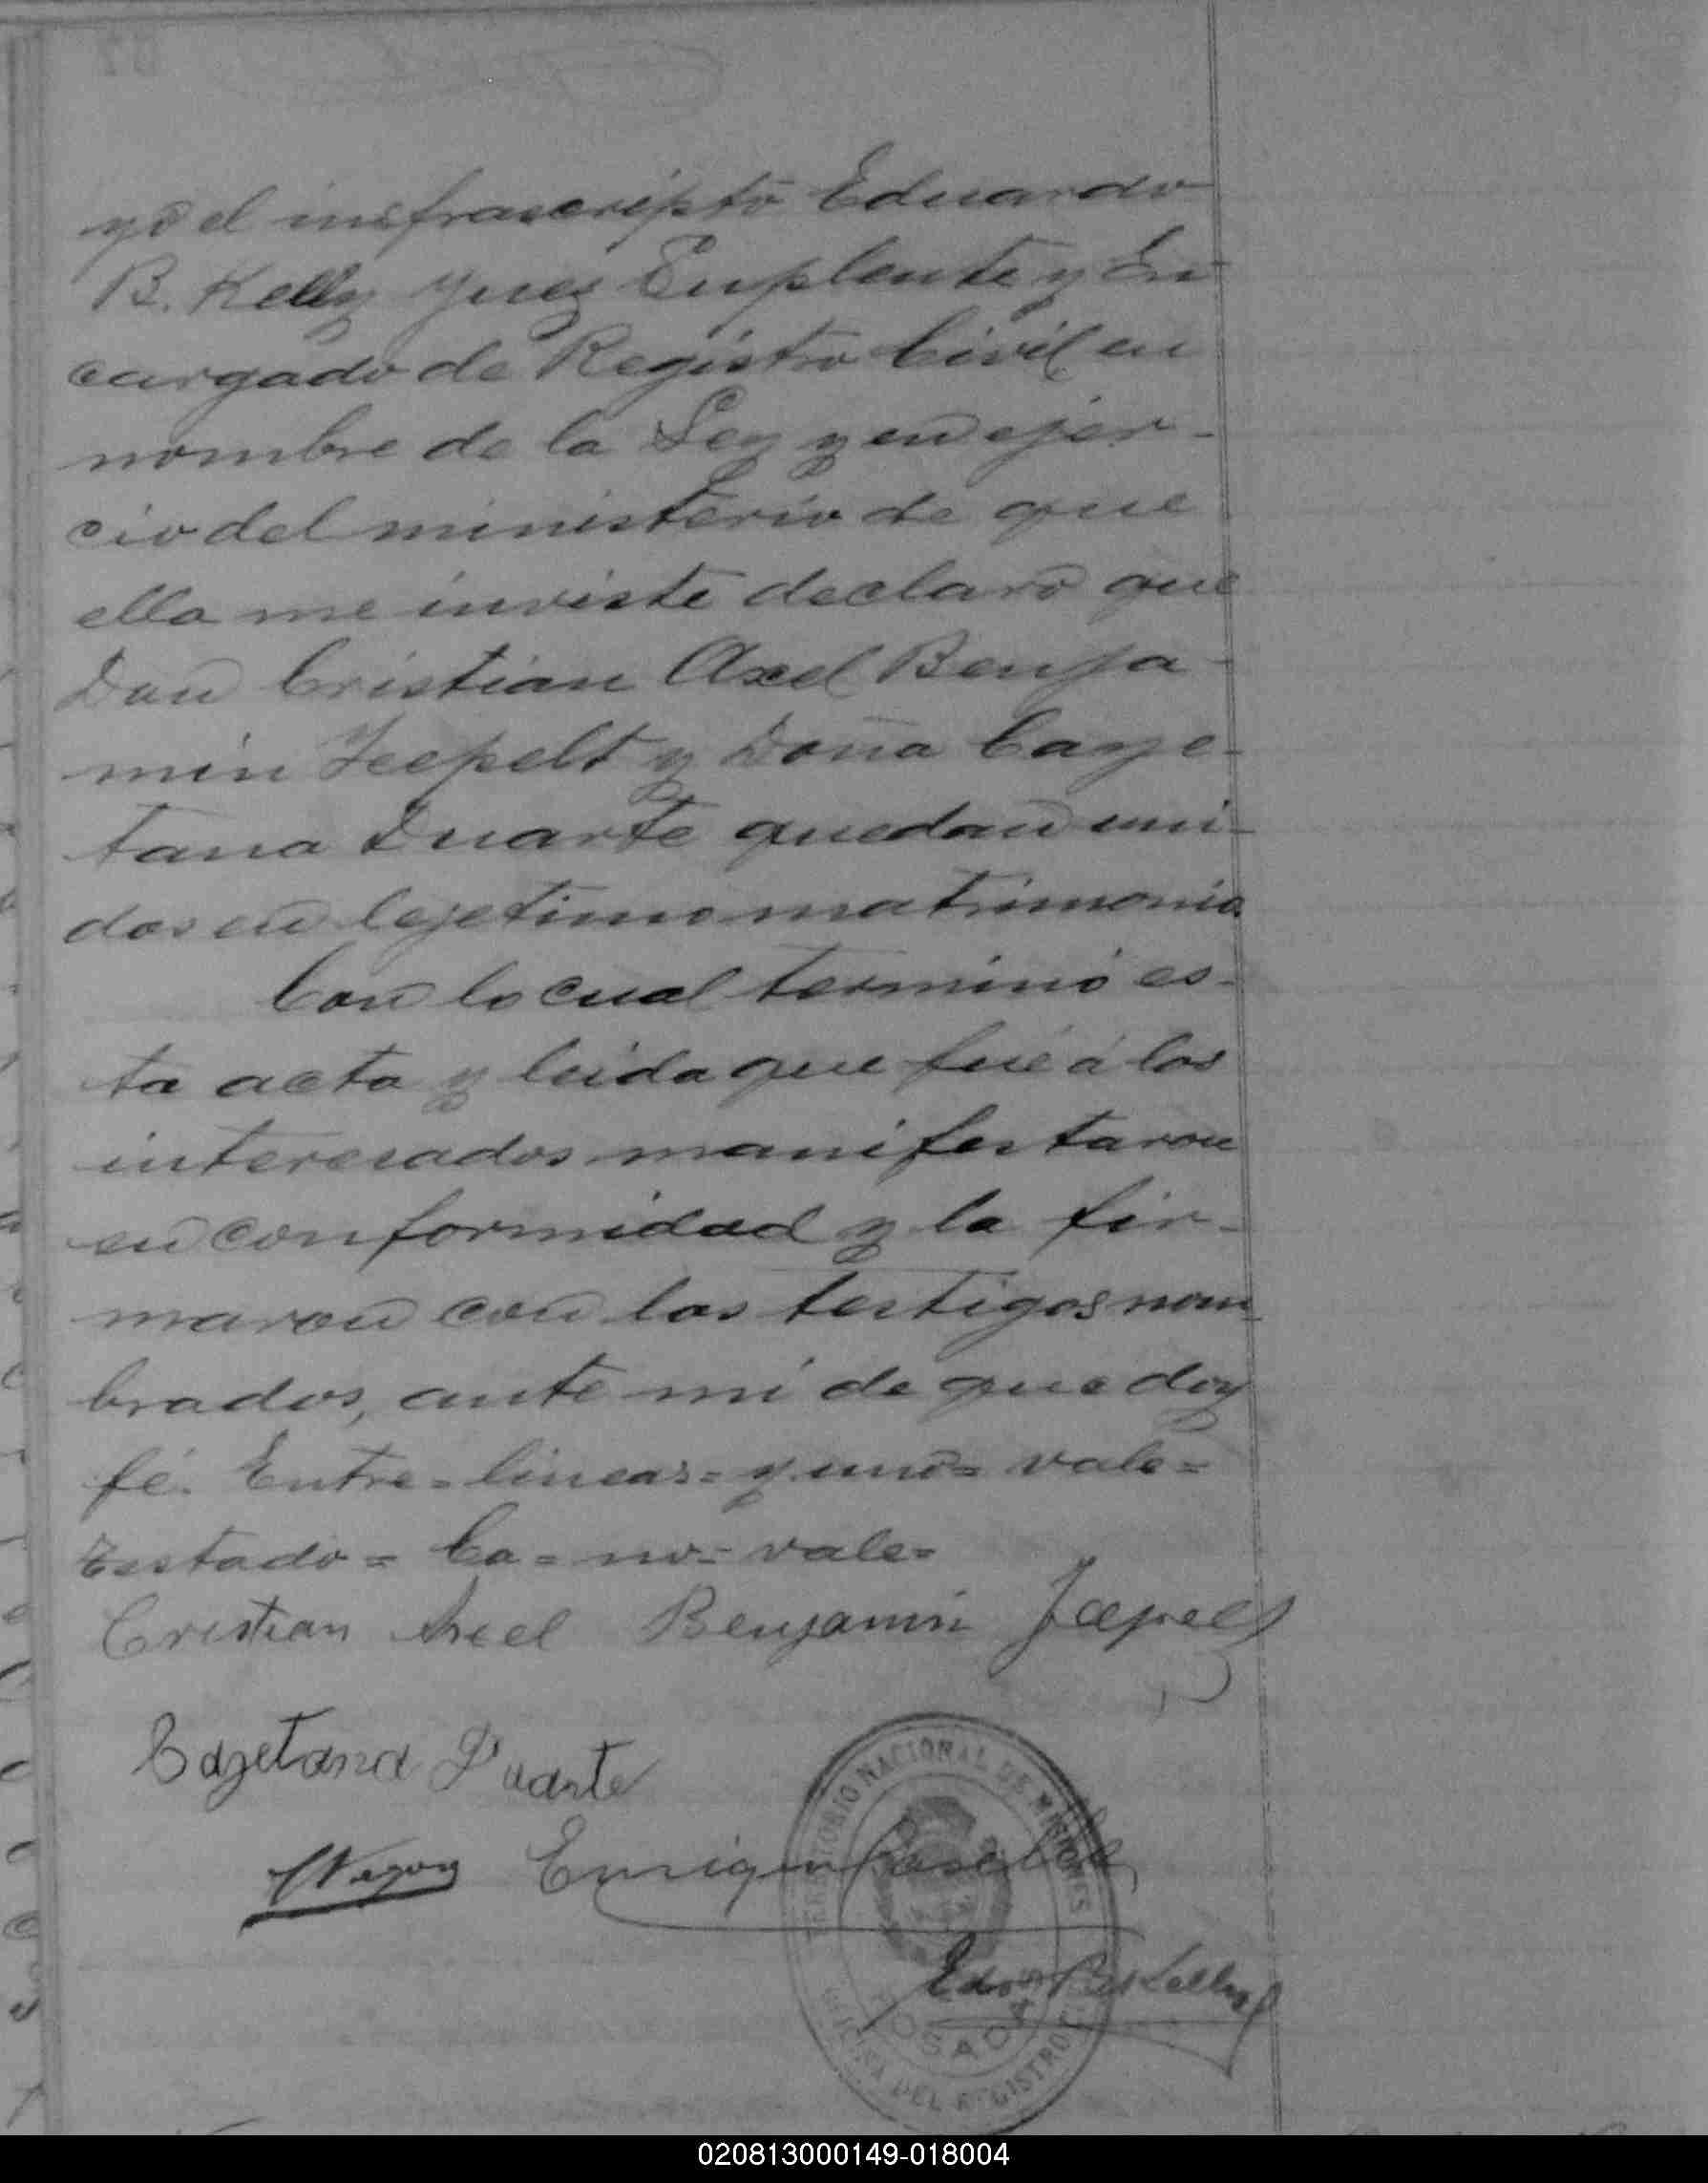 yo el insfrascripto Eduardo
B. Kelly Juez Suplente y En
cargado de Registro Civil en
nombre de la Ley y en ejer-
cio del ministerio de que
ella me inviste declaro que
Don Cristian Axel Benja-
min Jeepelt y Doña Caye-
tana Duarte quedan uni-
dos en lejetimo matrimonio
Con lo cual terminó es-
ta acta y leida que fué á los
interesados manifestaron
en conformidad y la fir-
maron con los testigos nom
brados, ante mi de que doy
fé. Entre=lineas=y uno=vale=
Testado=Ca=no=vale=
Cristian Axel Benjamin
Cayetana Duarte
Enrique
TERRITORIO NACIONAL DE MISIONES
POSADAS
OFICINA DEL REGISTRO
020813000149-018004